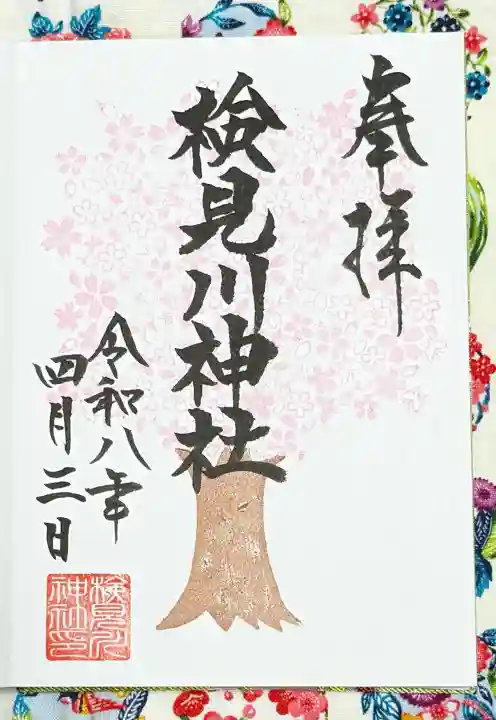 奉拝
検見川神社
令和八年
四月三日
検見川
神社印